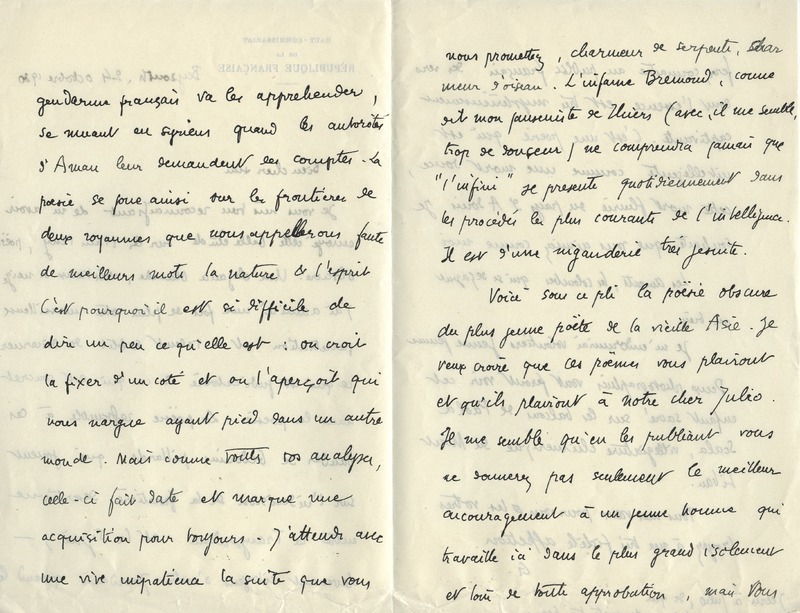 HAUT-COMMISSARIAT
DE LA
RÉPUBLIQUE FRANÇAISE
Beyrouth, 24 octobre 1920
gendarme français va les appréhender,
se muant en syriens quand les autorités
d'Aman leur demandent des comptes. La
poésie se joue ainsi sur les frontières de
deux royaumes que nous appellerons faute
de meilleurs mots la nature & l'esprit
C'est pourquoi il est si difficile de
dire un peu ce qu'elle est : on croit
la fixer d'un coté et on l'aperçoit qui
nous nargue ayant pied dans un autre
monde. Mais comme toutes vos analyses,
celle-ci fait date et marque une
acquisition pour toujours. J'attends avec
une vive impatience la suite que vous
nous promettez, charmeur de serpents, char
meur d'oiseau. L'infame Bremond, comme
dit mon janséniste de Thiers (avec, il me semble,
trop de douceur) ne comprendra jamais que
"l'infini" se présente quotidiennement dans
les procédés les plus courants de l'intelligence.
Il est d'une niganderie très jésuite.
Voici sous ce pli la poësie obscure
du plus jeune poëte de la vieille Asie. Je
veux croire que ces poëmes vous plairont
et qu'ils plairont à notre cher Julio.
Il me semble qu'en les publiant vous
ne donnerez pas seulement le meilleur
encouragement à un jeune homme qui
travaille ici dans le plus grand isolement
et loin de toute approbation, mais vous